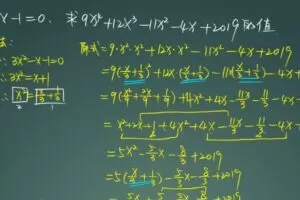 x-1=0. 求9x⁴+12x³-11x²-4x+2019的值
法:
∴3x²-x-1=0
∴3x²=x+1
∴x²=x/3+1/3
原式=9·x²·x²+12x·x²-11x²-4x+2019
=9(x/3+1/3)²+12x(x/3+1/3)-11(x/3+1/3)-4x+
=9(x²/9+2x/9+1/9)+4x²+4x-11x/3-11/3-4x
=x²+2x+1+4x²+4x-11x/3-11/3-4x
=5x²-5/3x-8/3+2019
=5(x/3+1/3)-5/3x-8/3+2019